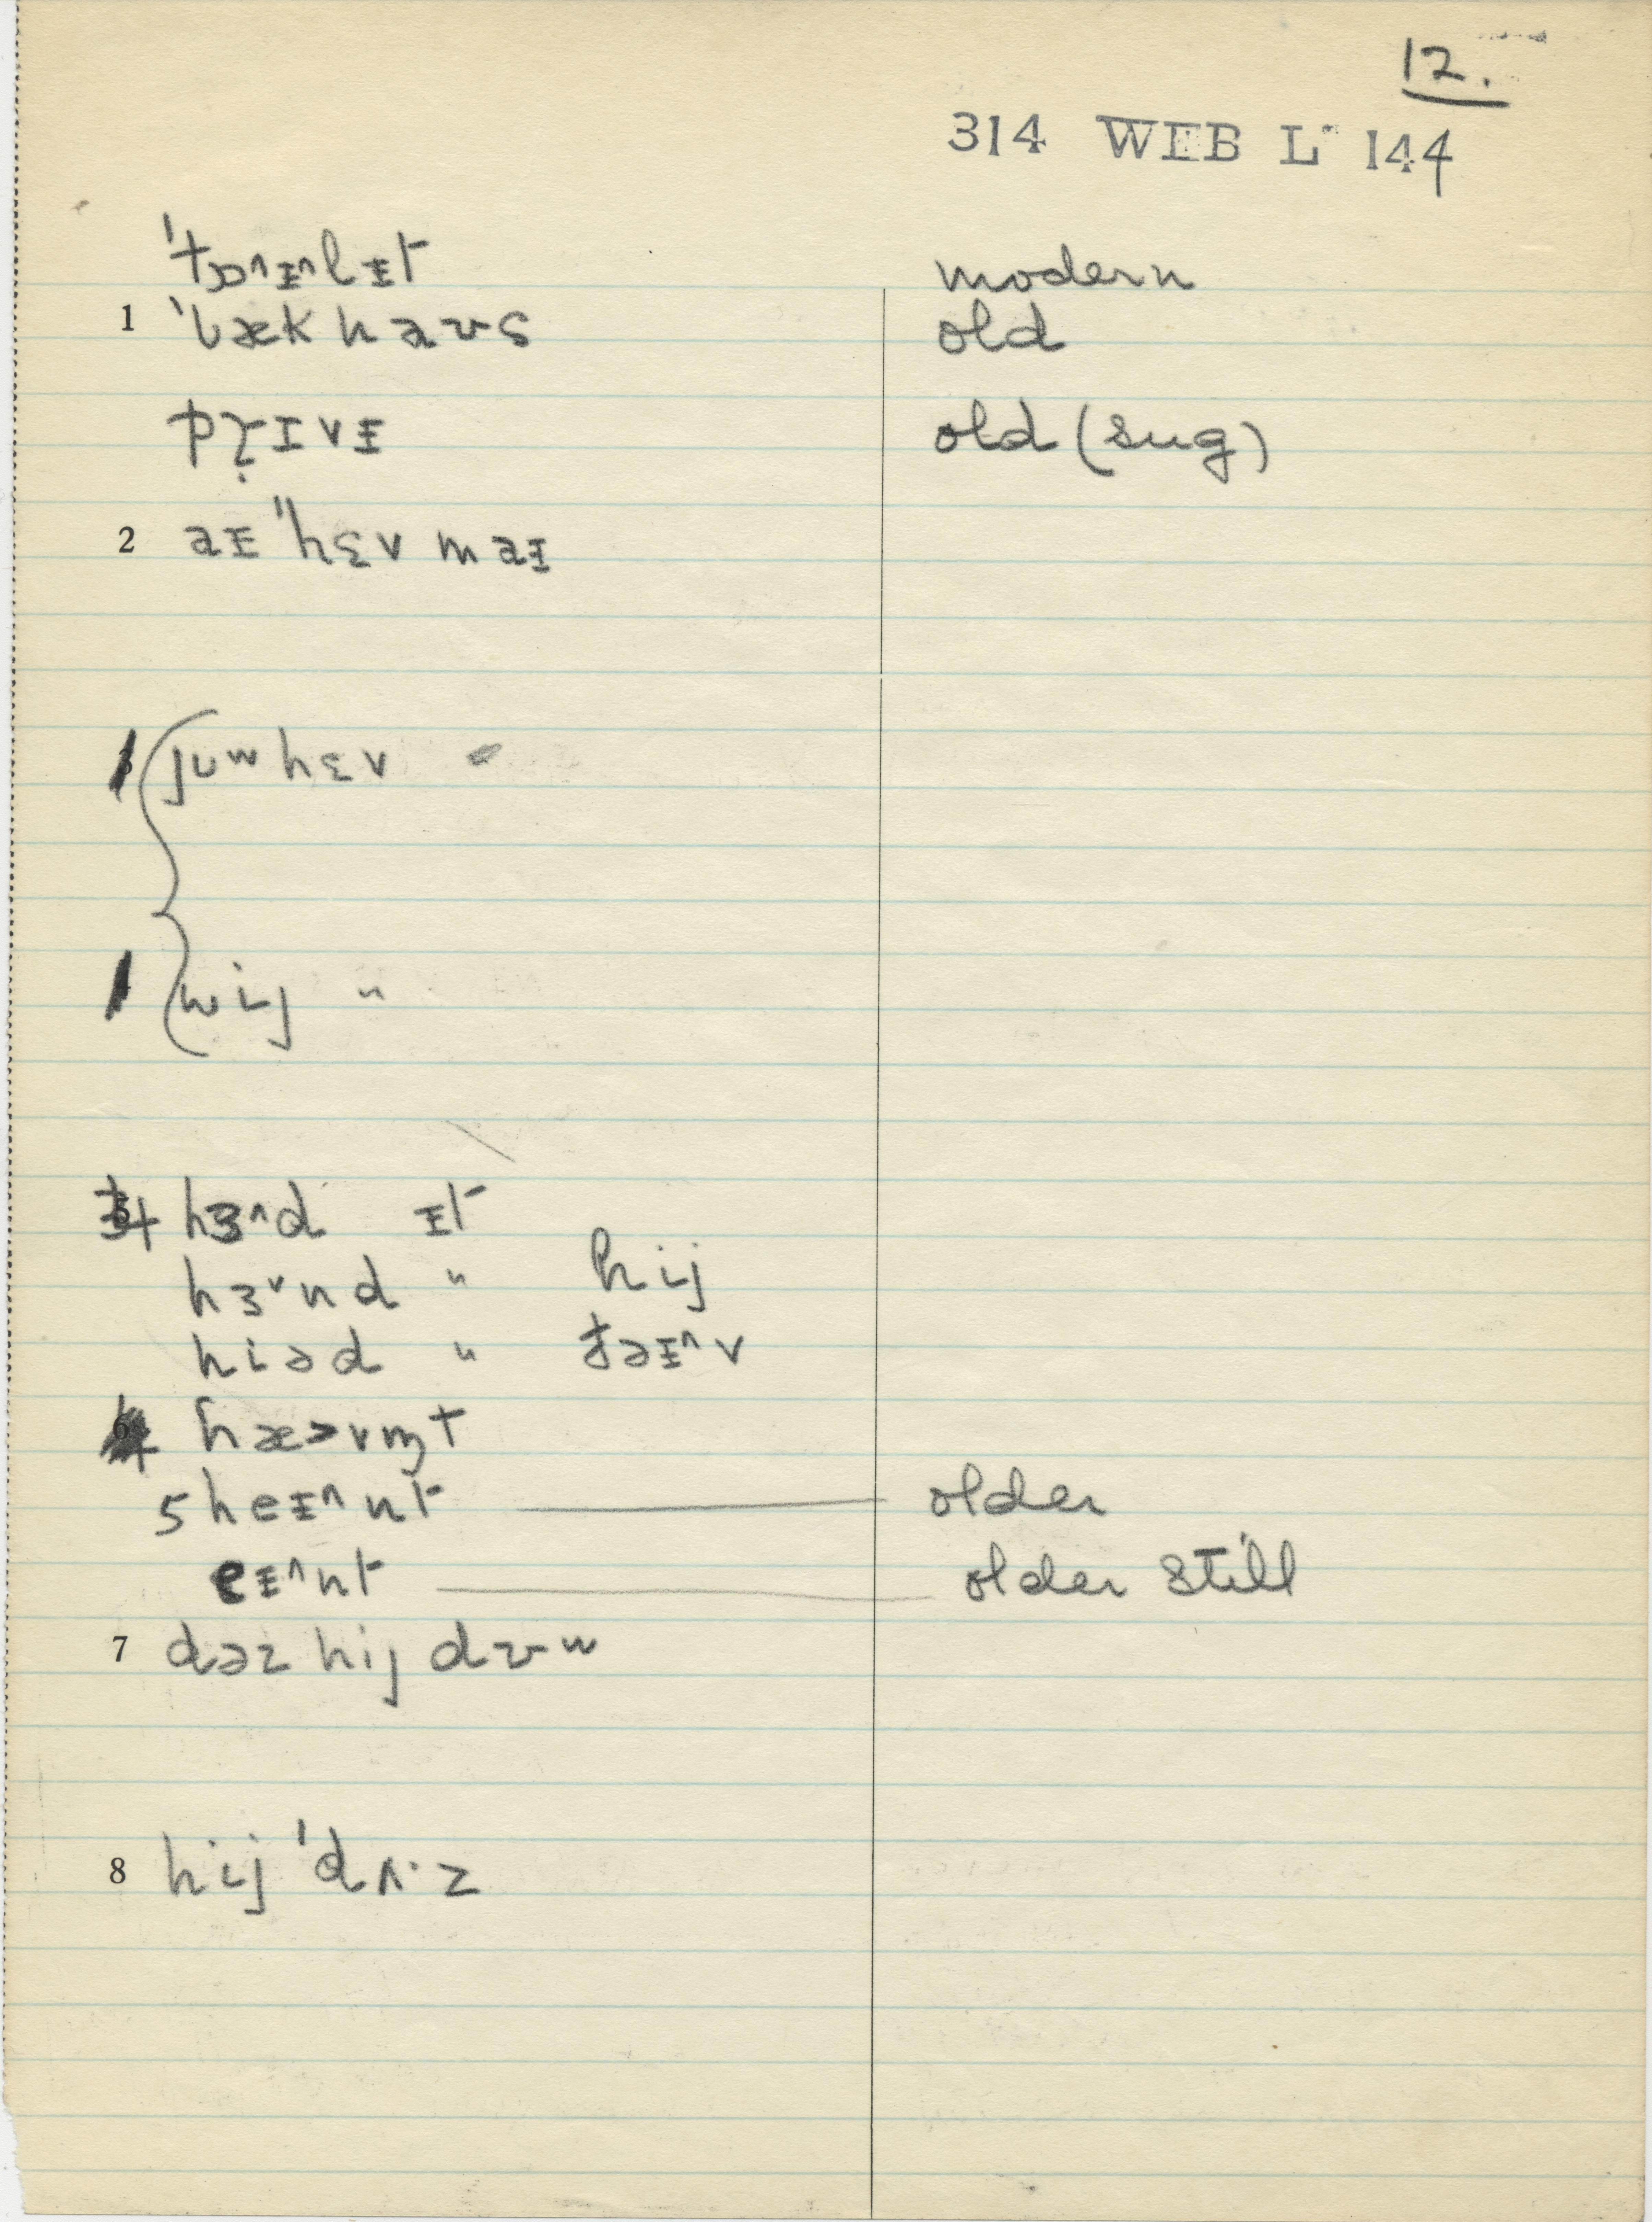 12.
314 WEB L 144
ˈtɒ^ᵻ^lᵻt modern
1 ˈbæk haʊs old
pr̥ɪvᵻ old (sug)
2 aᵻ "hɛv maᵻ
juʷ hɛv
wij "
hɜ^d ᵻt
hɜˇnd " hij
hiəd "
4
5 heᵻ^nt older
eᵻ^nt older still
7 dəz hij dʊʷ
8 hij ˈdʌ·z